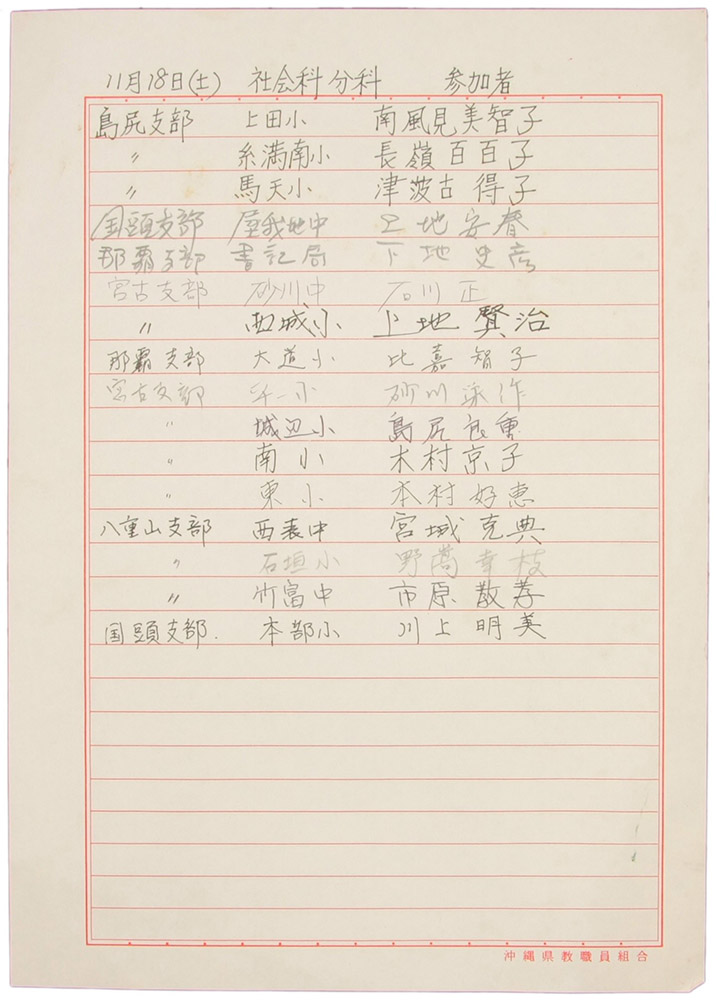 11月18日(土) 社会科分科 参加者
島尻支部 上田小 南風見美智子
〃 糸満南小 長嶺百百子
〃 馬天小 津波古得子
国頭支部 屋我地中 上地安春
那覇支部 書記局 下地史彦
宮古支部 砂川中 石川正
〃 西城小 上地賢治
那覇支部 大道小 比嘉智子
宮古支部 平一小 砂川 作
〃 城辺小 島尻 重
〃 南小 木村京子
〃 東小 本村好恵
八重山支部 西表中 宮城克典
〃 石垣小 野 幸枝
〃 竹富中 市原 孝
国頭支部. 本部小 川上明美
沖縄県教職員組合